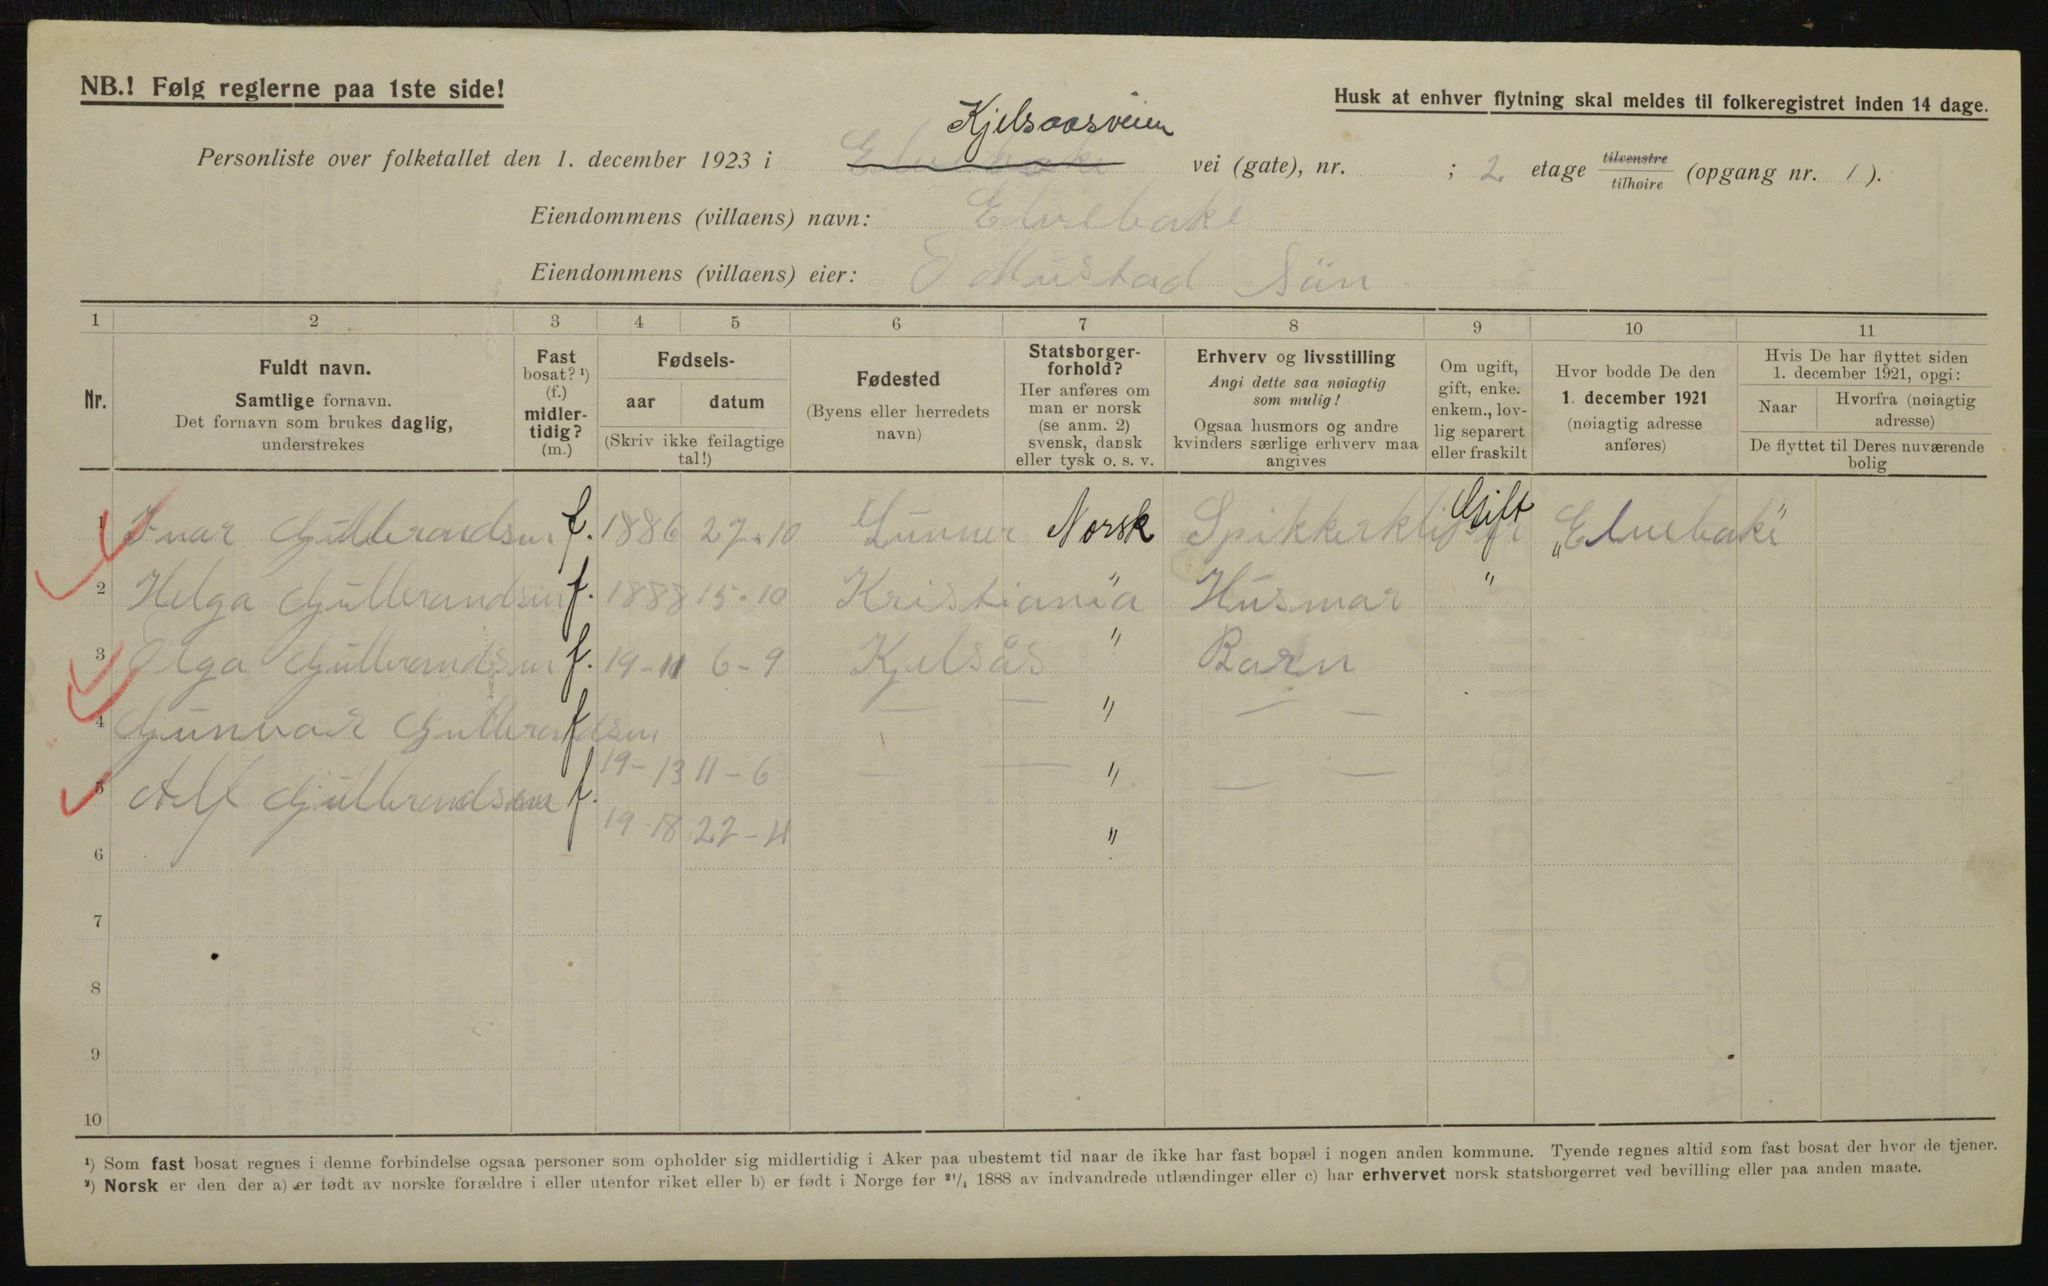 NB.! Følg reglerne paa 1ste side!
Husk at enhver flytning skal meldes til folkeregistret inden 14 dage.
Kjelsaasveien
Personliste over folketallet den 1. december 1923 i Elvebake vei (gate), nr. ; 2 etage tilvenstre tilhøire (opgang nr. 1).
Eiendommens (villaens) navn: Elvebake
Eiendommens (villaens) eier: O Mustad Sön
1 2 3 4 5 6 7 8 9 10 11
Nr.
Fuldt navn.
Samtlige fornavn.
Det fornavn som brukes daglig,
understrekes
Fast
bosat? ¹)
(f.)
midler-
tidig?
(m.)
Fødsels-
aar datum
(Skriv ikke feilagtige
tal!)
Fødested
(Byens eller herredets
navn)
Statsborger-
forhold?
Her anføres om
man er norsk
(se anm. 2)
svensk, dansk
eller tysk o. s. v.
Erhverv og livsstilling
Angi dette saa nøiagtig
som mulig!
Ogsaa husmors og andre
kvinders særlige erhverv maa
angives
Om ugift,
gift, enke.
enkem., lov-
lig separert
eller fraskilt
Hvor bodde De den
1. december 1921
(nøiagtig adresse
anføres)
Hvis De har flyttet siden
1. december 1921, opgi:
Naar
Hvorfra (nøiagtig
adresse)
De flyttet til Deres nuværende
bolig
1 Ivar Gulbrandsen f. 1886 27.10 Lunner Norsk Gift „Elvebake"
2 Helga Gulbrandsen f. 1888 15-10 Kristiania " Husmor "
3 Olga Gulbrandsen f. 19-11 6-9 Kjelsås " Barn
4 Gunvor Gulbrandsen f — — " — —
19-13 11-6 — — " — —
5 Alf Gulbrandsen f.
19-18 22-4 "
6
7
8
9
10
¹) Som fast bosat regnes i denne forbindelse ogsaa personer som opholder sig midlertidig i Aker paa ubestemt tid naar de ikke har fast bopæl i nogen anden kommune. Tyende regnes altid som fast bosat der hvor de tjener.
²) Norsk er den der a) er født av norske forældre i eller utenfor riket eller b) er født i Norge før ²¹/₄ 1888 av indvandrede utlændinger eller c) har erhvervet norsk statsborgerret ved bevilling eller paa anden maate.